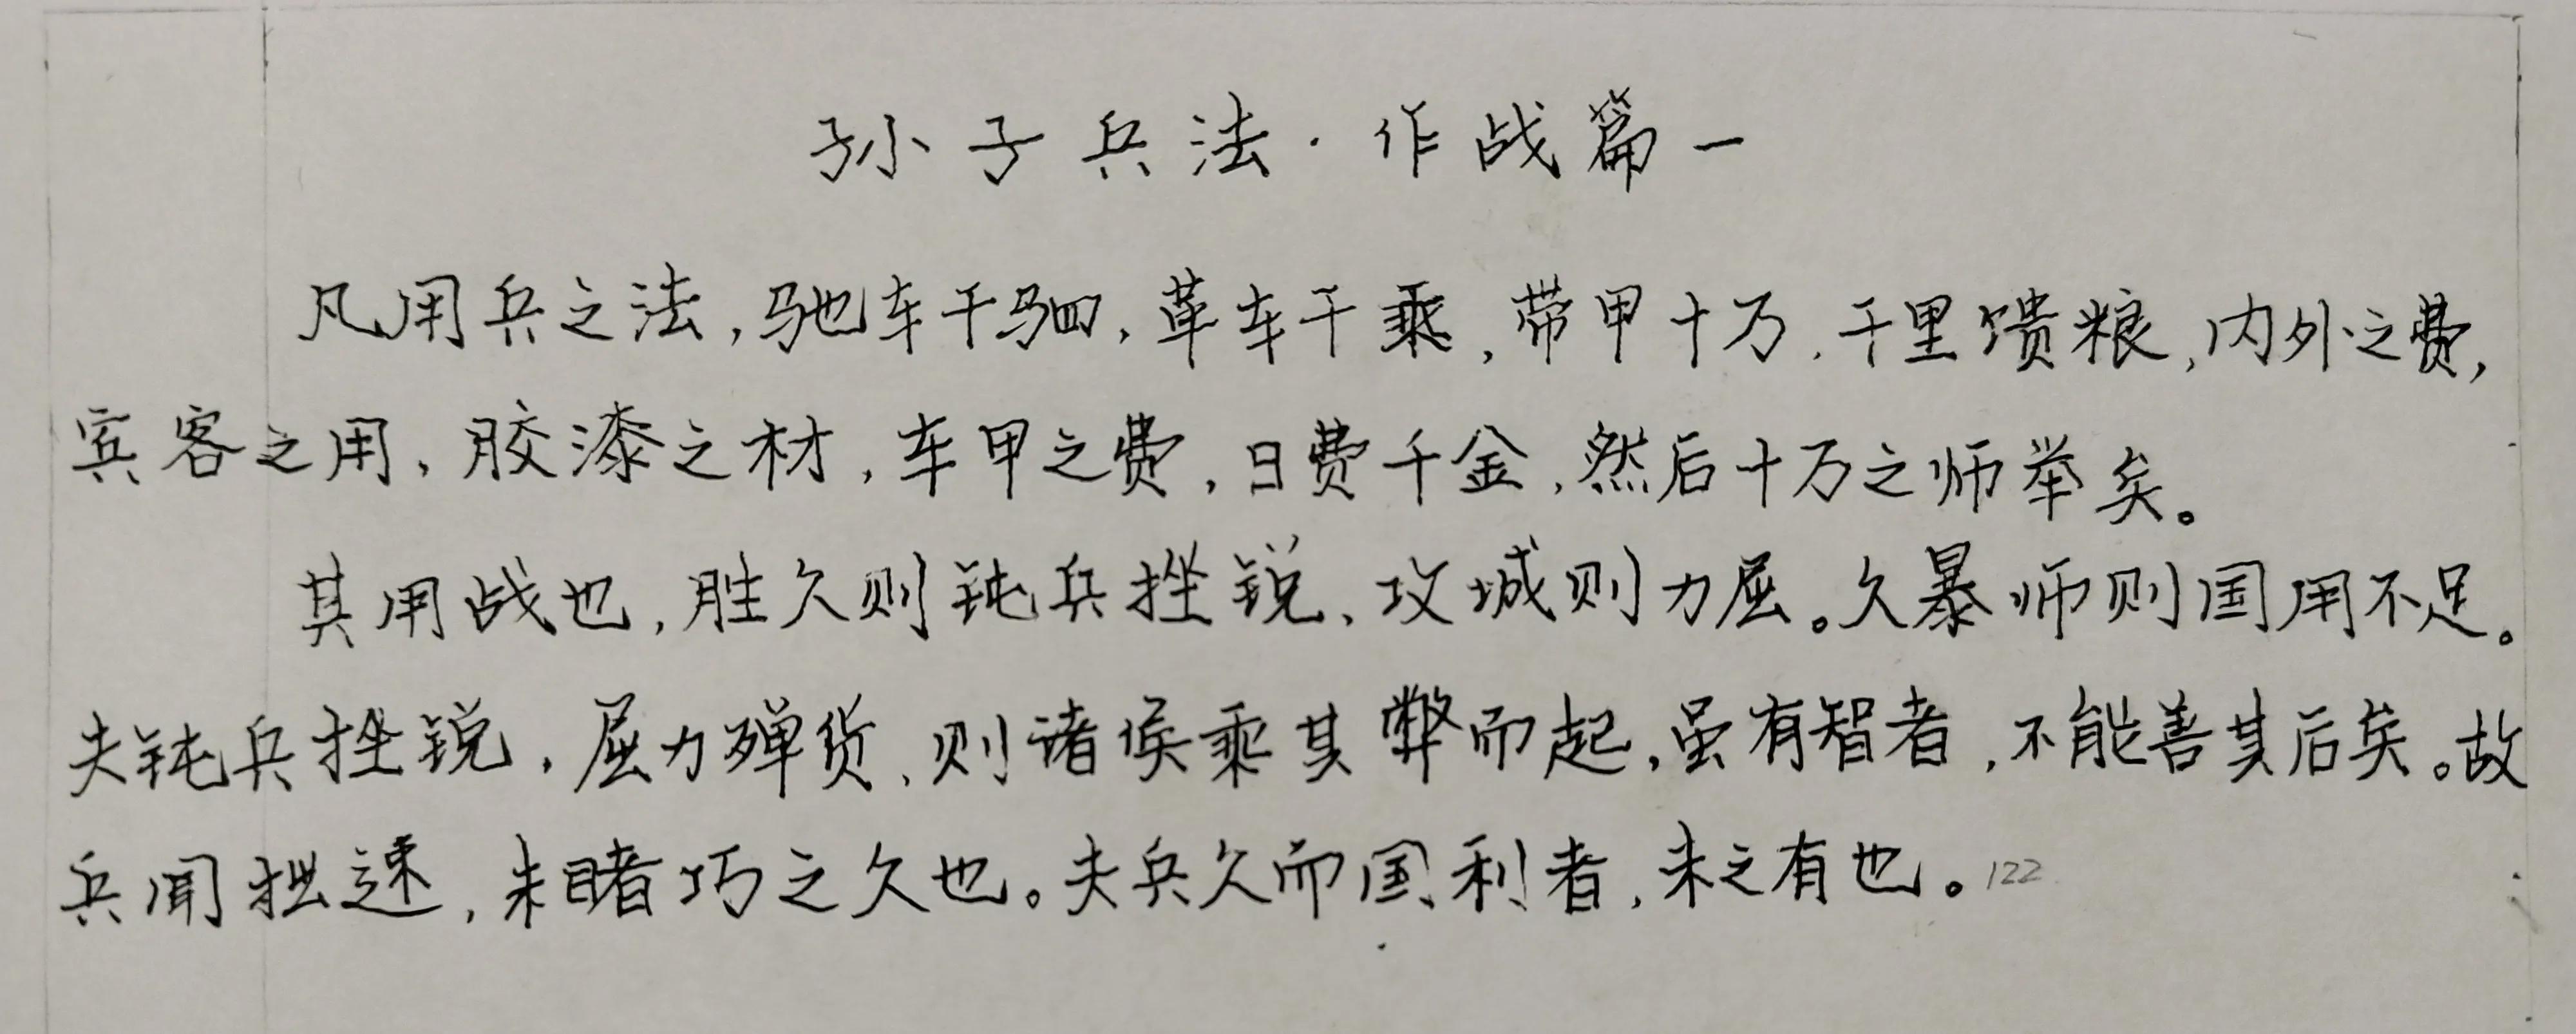 孙子兵法·作战篇一
凡用兵之法,驰车千驷,革车千乘,带甲十万,千里馈粮,内外之费,
宾客之用,胶漆之材,车甲之费,日费千金,然后十万之师举矣。
其用战也,胜久则钝兵挫锐、攻城则力屈。久暴师则国用不足。
夫钝兵挫锐,屈力殚货、则诸侯乘其弊而起,虽有智者,不能善其后矣。故
兵闻拙速,未睹巧之久也。夫兵久而国利者,未之有也。122